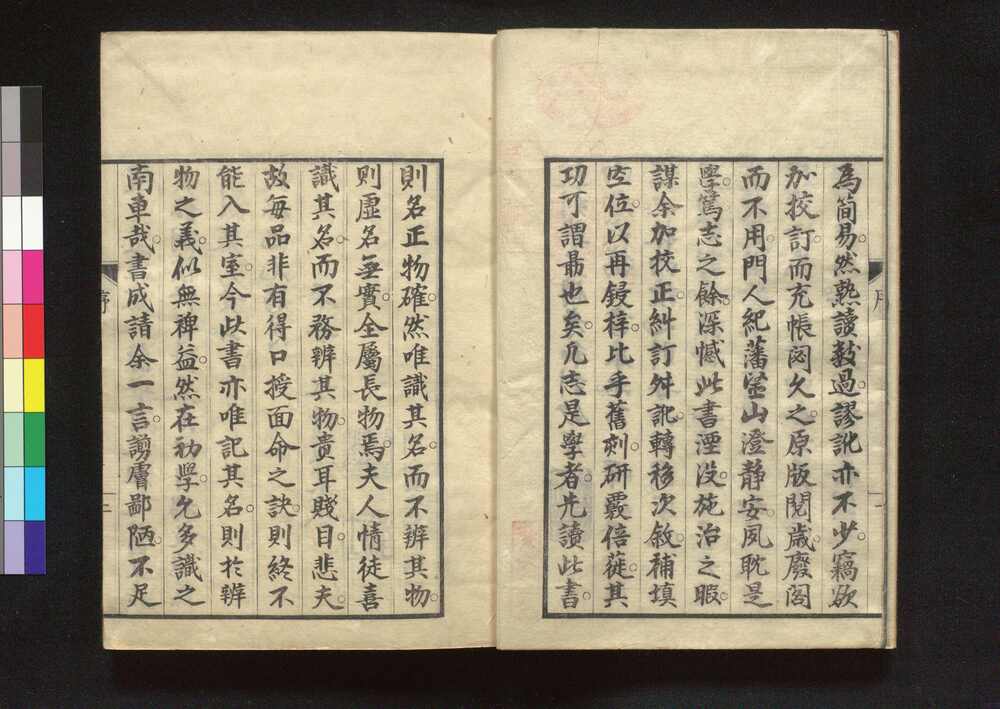 為簡易。然熟讀數過。謬訛亦不少。竊欲
加挍訂。而充帳閟久之。原版閱歲。廢閣
而不用。門人紀藩壡山澄静安。夙耽是
學。篤志之餘。深憾此書湮没。施治之暇。
謀余加挍正。糾訂舛訛。轉移次敘。補填
空位。以再鋟梓。比乎舊刻。研覈倍蓰。其
功可謂最也矣。凡志是學者。先讀此書。
則名正物確。然唯識其名。而不辨其物。
則虛名無實。全屬長物焉。夫人情徒喜
識其名。而不務辨其物。貴耳賤目。悲夫。
故每品非有得口授面命之訣。則終不
能入其室。今此書亦唯記其名。則於辨
物之義。似無裨益。然在初學。乞多識之
南車哉。書成請余一言。謭膚鄙陋。不足
序
序
三